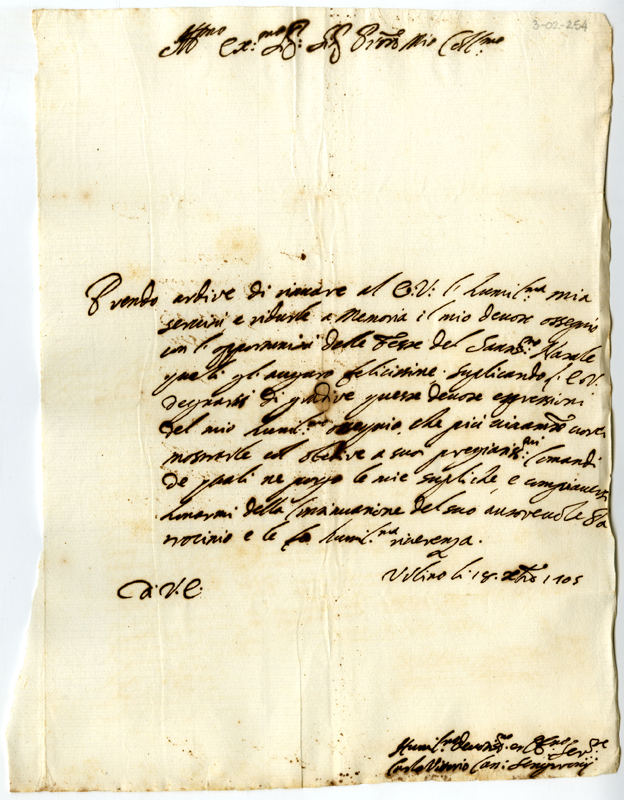 3-02-254
Ill.mo Ecc.mo Sig.r Sig.r P.ron Mio Coll.mo
Prendo ardire di inviare al E.V. l' humil.ma mia
servitù e ridurle a Memoria il mio devoto ossequio
con l'opportunità delle feste del Sant.mo Natale
quali gl'auguro felicissime. suplicando l' E.V.
degnarsi di gradire queste devote expressioni
del mio humil.mo ossequio, che più
mostrarle col obedire a suoi pregiatiss.mi Comandi
de quali ne porgo le mie supliche, e compiacersi
honorarmi della Continuatione del suo autorevole Pa
trocinio e le fo humil.ma riverenza.
Urbino li 18. Xbre 1705
Di V.E.
Humil.mo Devotiss.mo et Obl.mo Ser.re
Carlo Vittorio Can: Sempronij